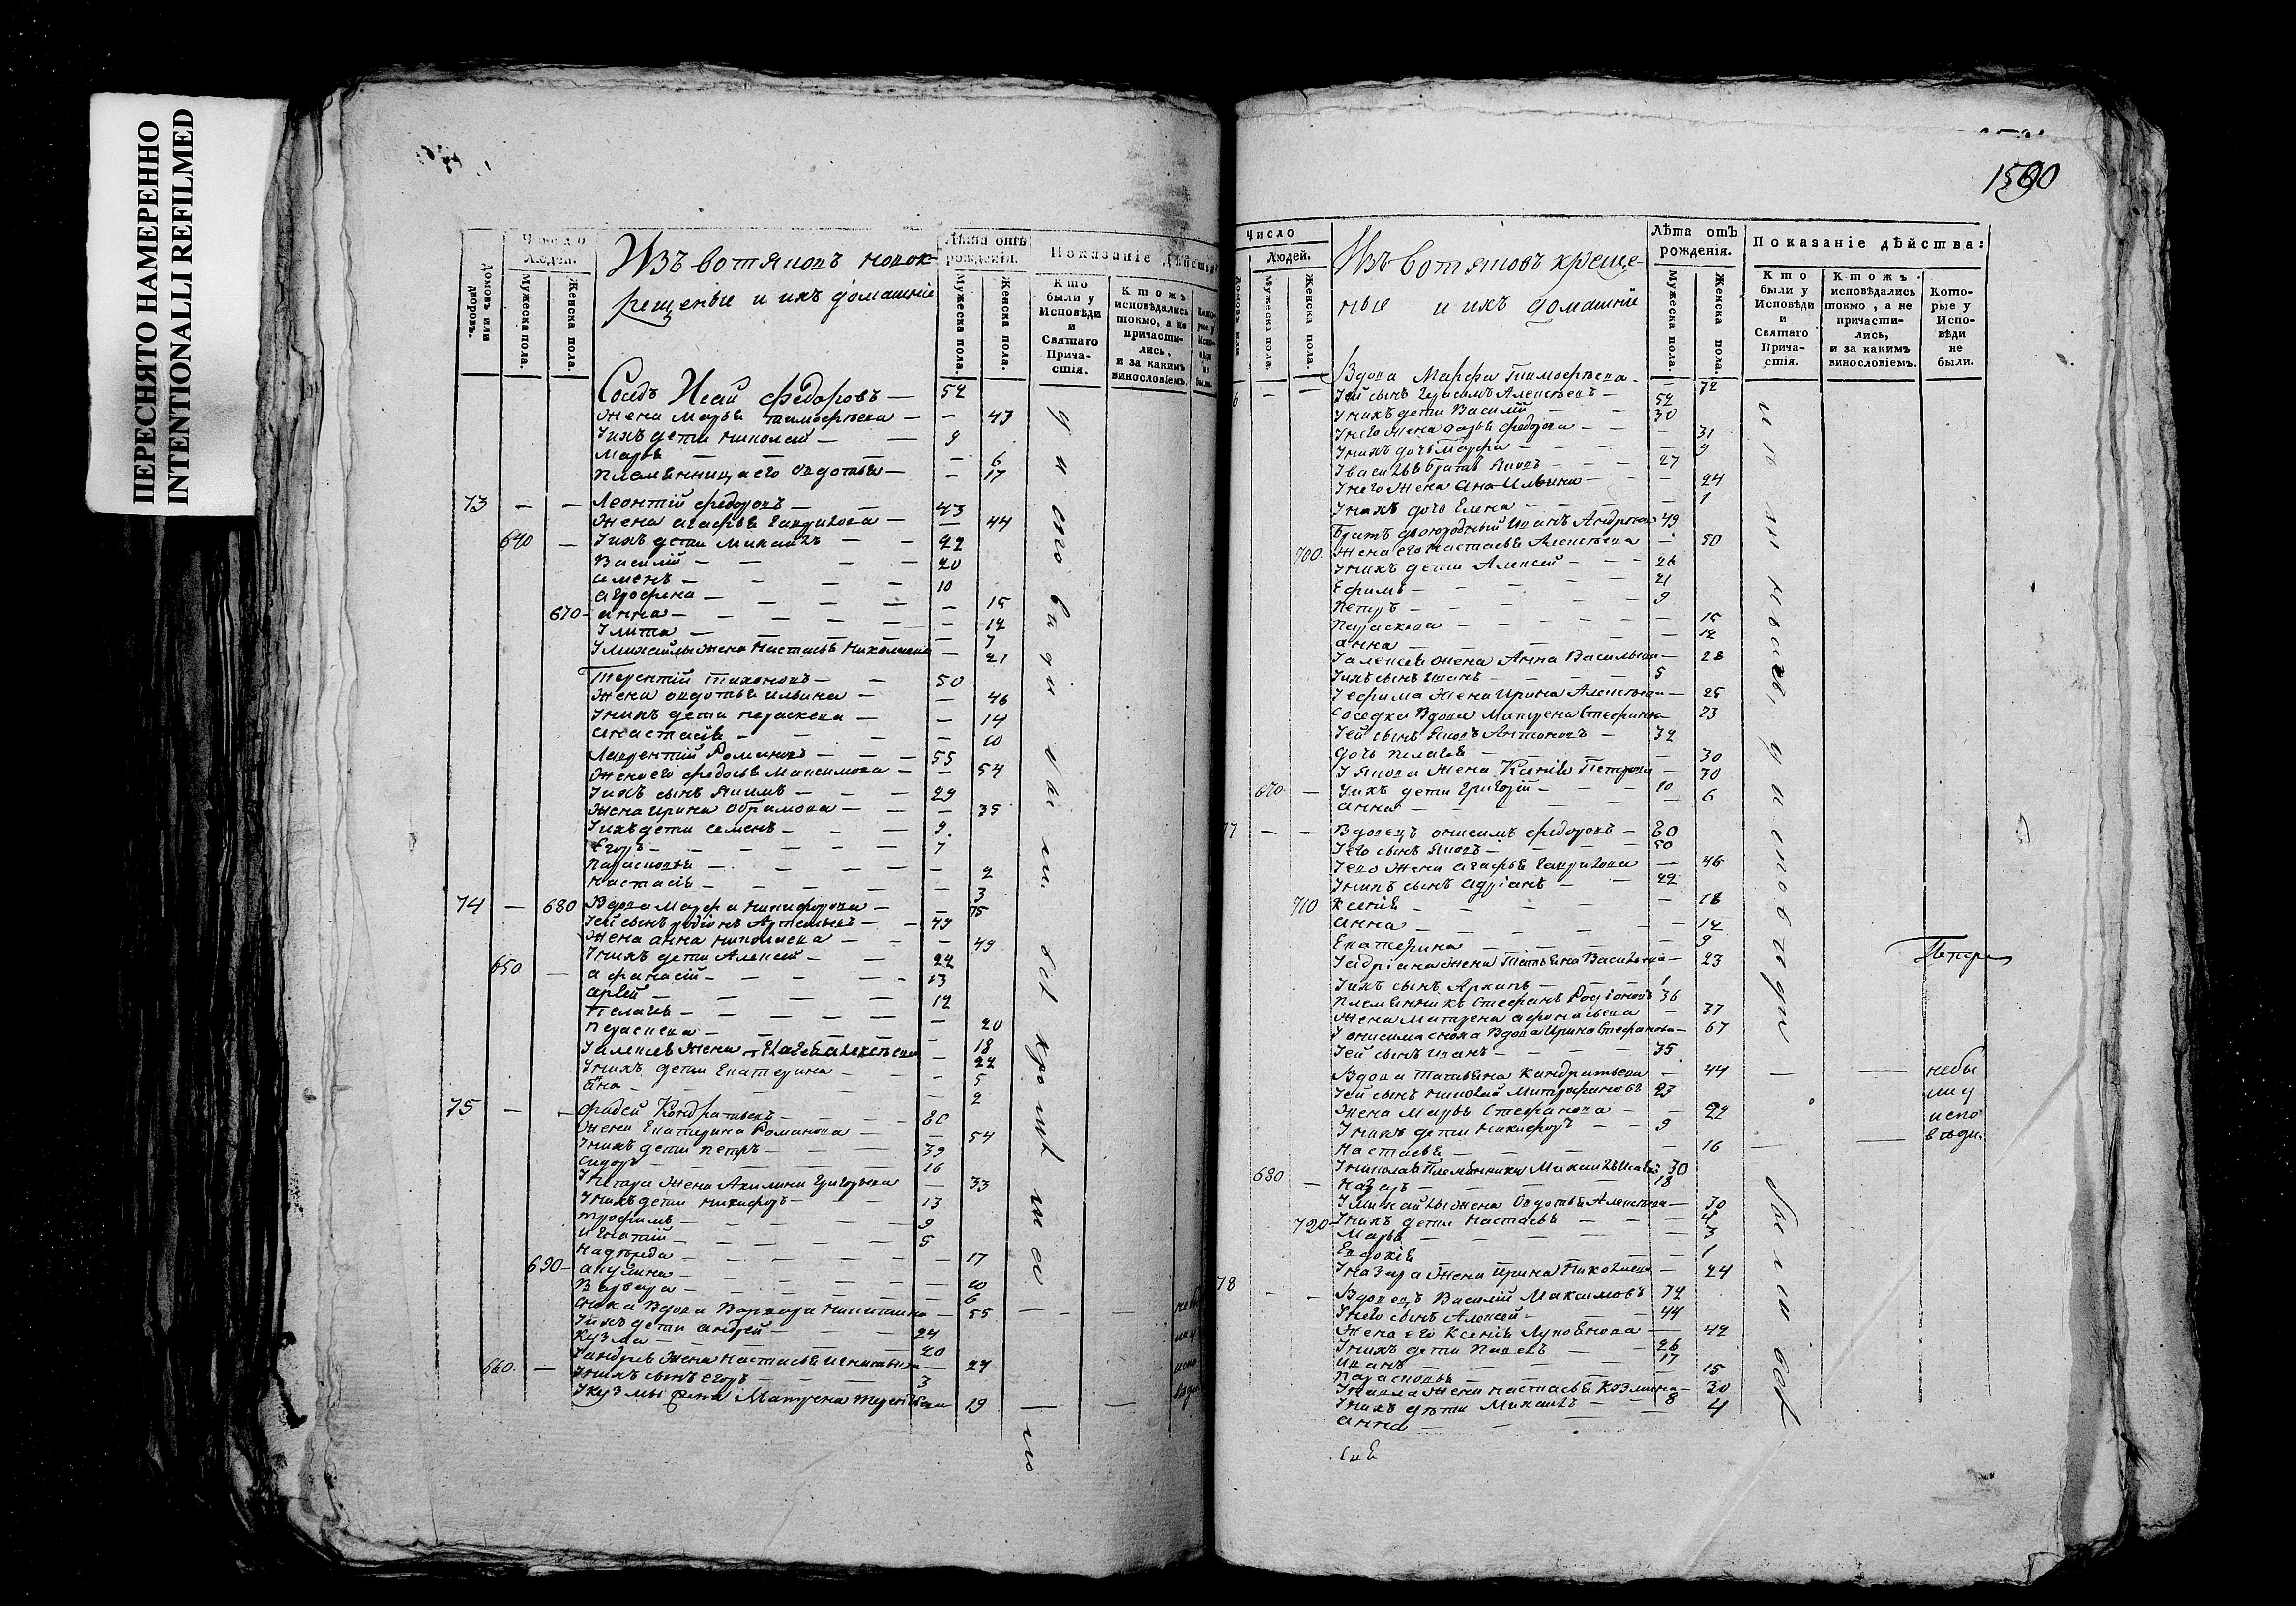 ПЕРЕСНЯТО НАМЕРЕННО
INTENTIONALLI REFILMED
Домовъ или дворовъ.
Число Людей.
Мужеска пола.
Женска пола.
Изъ вотяковъ новок-
рещеные и ихъ домашніе
Лѣта отъ рожденія.
Мужеска пола.
Женска пола.
Показаніе дѣйства
Кто были у Исповѣди и Святаго Прича- стія.
Ктожъ исповѣдались токмо, а не причасти- лись, и за какимъ винословіемъ.
Сосѣдъ Исай Федоровъ — 52
Жена Марья Тимофѣева — — 43
У ихъ дети Николай — — 9
Марья — — — — 6
Племянница его Овдотья — — 17
73 — — Леонтий Федоровъ — — 43
Жена Агафья Гаврилова — — 44
640 — У ихъ дети Михаилъ — — 22
Василий — — — — 20
Семенъ — — — — 10
Агрофена — — — — — 15
670 — Анна — — — — — 12
Улита — — — — — 7
У Михайлы жена Настасья Николаева — 21
Терентий Тихоновъ — — 50
Жена Овдотья Ильина — — 46
У нихъ дети Параскева — — 14
Анастасія — — — — 10
Лаврентий Романовъ — — — 55
Жена его Федосья Максимова — — 54
У ихъ сынъ Якимъ — — — 29
Жена Ирина Обрамова — — — 35
У ихъ дети Семенъ — — — 9
Егоръ — — — — — 7
Парасковья — — — — — 2
Настасія — — — — — 3
74 — 680 Вдова Марфа Никифорова — — 75
У ей сынъ Родіонъ Артемьевъ — — 49
Жена Анна Николаева — — — 49
650 — У нихъ дети Алексей — — 22
Афанасій — — — — 13
Арѣй — — — — 12
Пелагѣя — — — — — 20
Параскева — — — — — 18
У Алексея жена Пелагѣя Алексѣева — 22
У нихъ дети Екатерина — — — 5
Анна — — — — — 2
75 — — Фадей Кондратьевъ — — — 80
Жена Екатерина Романова — — 54
У нихъ дети Петръ — — — 39
Сидоръ — — — — — 16
У Петра жена Акилина Григорьева — 33
У нихъ дети Никифоръ — — — 13
Трофимъ — — — — — 9
Игнатий — — — — — 5
Надежда — — — — — 17
690 — Акулина — — — — — 10
Варвара — — — — — 6
Сноха Вдова Варвара Никитина — 55 — — —
У ихъ дети Андрей — — — 24
Кузма — — — — 20
У Андрея жена Настасья Игнатьева — 27
660. — У нихъ сынъ Егоръ — — — 3
У Кузмы жена Матрена Терентьева 19 — —
1590
Число
Людей.
Мужеска пола.
Женска пола.
Изъ Вотяковъ креще-
ные и ихъ домашніе
Лѣта отъ рожденія.
Мужеска пола.
Женска пола.
Показаніе дѣйства:
Кто были у Исповѣди и Святаго Прича- стія.
Ктожъ исповѣдались токмо, а не причасти- лись, и за какимъ винословіемъ.
Кото- рые у Испо- вѣди не были.
6 — — Вдова Марфа Тимофѣева — — 72
У ей сынъ Герасимъ Алексѣевъ — 52
У нихъ дети Василій — — 30
У него жена Дарья Федорова — — 31
У нихъ дочь Марфа — — — 9
У Василья братъ Яковъ — — — 27
У него жена Анна Ильина — — — 24
У нихъ дочь Елена — — — — 1
Братъ двоюродный Иванъ Андреевъ 49
700. Жена его Настасья Алексѣева — 50
У нихъ дети Алексей — — — 26
Ефимъ — — — — — 21
Петръ — — — — — 9
Параскева — — — — — 15
Анна — — — — — 12
У Алексея жена Анна Васильева — 28
У ихъ сынъ Иванъ — — — — 5
У Ефима жена Ирина Алексѣева — 25
Соседка Вдова Матрена Стефанова 73
У ей сынъ Яковъ Антоновъ — 32
Дочь Пелагѣя — — — — 30
У Якова жена Ксенія Петрова — 30
670 — У ихъ дети Григорій — — — 10
Анна — — — — — 6
77 — — Вдовецъ Онисимъ Федоровъ — 80
У его сынъ Яковъ — — — — 50
У его жена Агафья Гаврилова — 46
У нихъ сынъ Адріанъ — — 22
710 Ксенія — — — — — 18
Анна — — — — — 12
Екатерина — — — — — 9
У Адріана жена Татьяна Васильева — 23
У ихъ сынъ Архипъ — — — — 1
Племянникъ Стефанъ Родіоновъ 36
Жена Матрена Афонасьева — 37
У Онисима сноха Вдова Ирина Стефанова — 67
У ей сынъ Иванъ — — — — 35
Вдова Татьяна Кондратьева — 44 — — небы
У ей сынъ Николай Митрофановъ 23 ли у
Жена Марья Стефанова — — 22 испо
У нихъ дети Никифоръ — — 9 вѣди.
Настасья — — — — 16 — —
У Николая племянники Михаилъ Исаевъ 30
680 — Назаръ — — — — 18
У Михайлы жена Овдотья Алексѣева — 30
720 — У нихъ дети Настасья — — — 4
Марья — — — — — 3
Евдокія — — 1
У Назара жена Ирина Николаева — 24
78 — — Вдовецъ Василій Максимовъ 72
У него сынъ Алексей — — — 44
Жена его Ксенія Луповнова — 42
У нихъ дети Павелъ — — — 26
Иванъ — — — — 17
Парасковья — — — — 15
У Павла жена Настасья Кузмина — 30
У нихъ дети Михаилъ — — 8
Анна — — — — 4